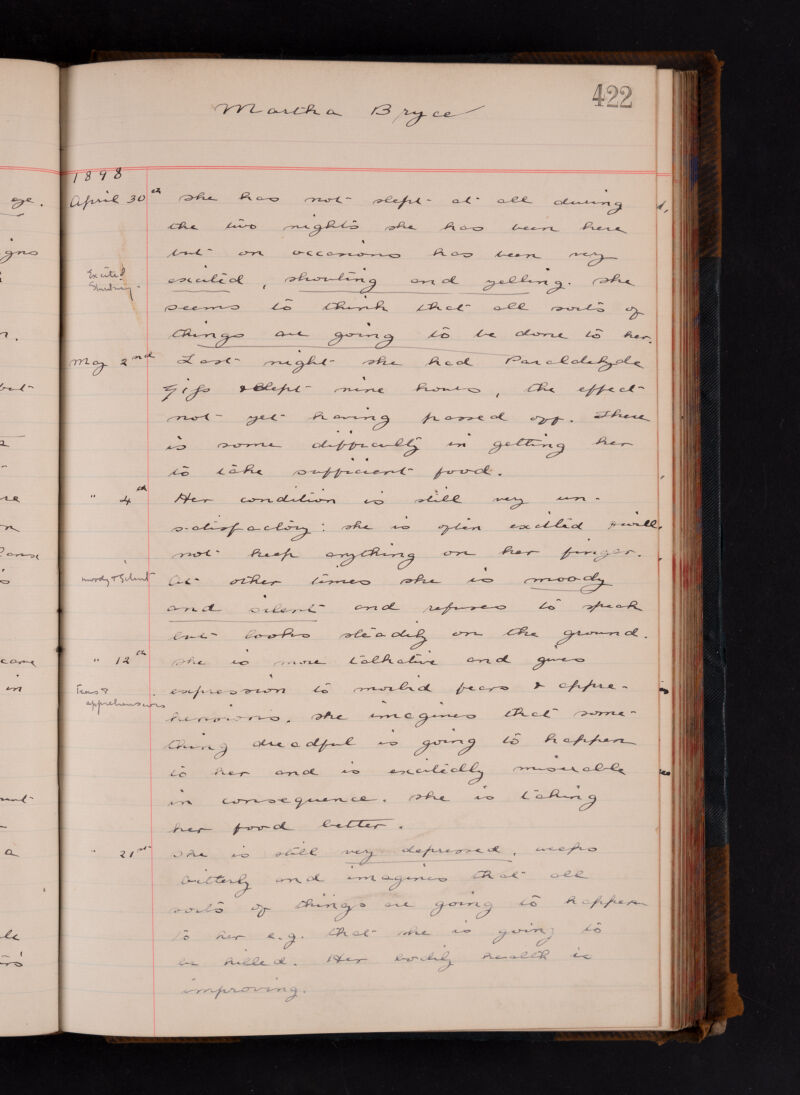 422
Martha Bryce
1898
April 30th She has not slept at all during
the two nights she has been here
but on occasions has been very
Excited
Shouting.
excited, shouting and yelling. She
seems to think that all sorts of
things are going to be done to her.
May 2nd Last night she had Paraldehyde
& slept nine hours, the effect
not yet having passed off. There
is some difficulty in getting her
to take sufficient food.
" 4th Her condition is still very un-
satisfactory: she is often excited & will
not keep anything on her finger.
moody & Silent At other times she is moody
and silent and refuses to speak
but looks steadily on the ground.
" 12th She is more talkative and gives
Fears &
apprehensions
expression to morbid fears & appre-
hensions. She imagines that some-
thing dreadful is going to happen
to her and is excitedly miserable
in consequence. She is taking
her food better.
" 21st She is still very depressed, weeps
bitterly and imagines that all
sorts of things are going to happen
to her e.g. that she is going to
be killed. Her bodily health is
improving.